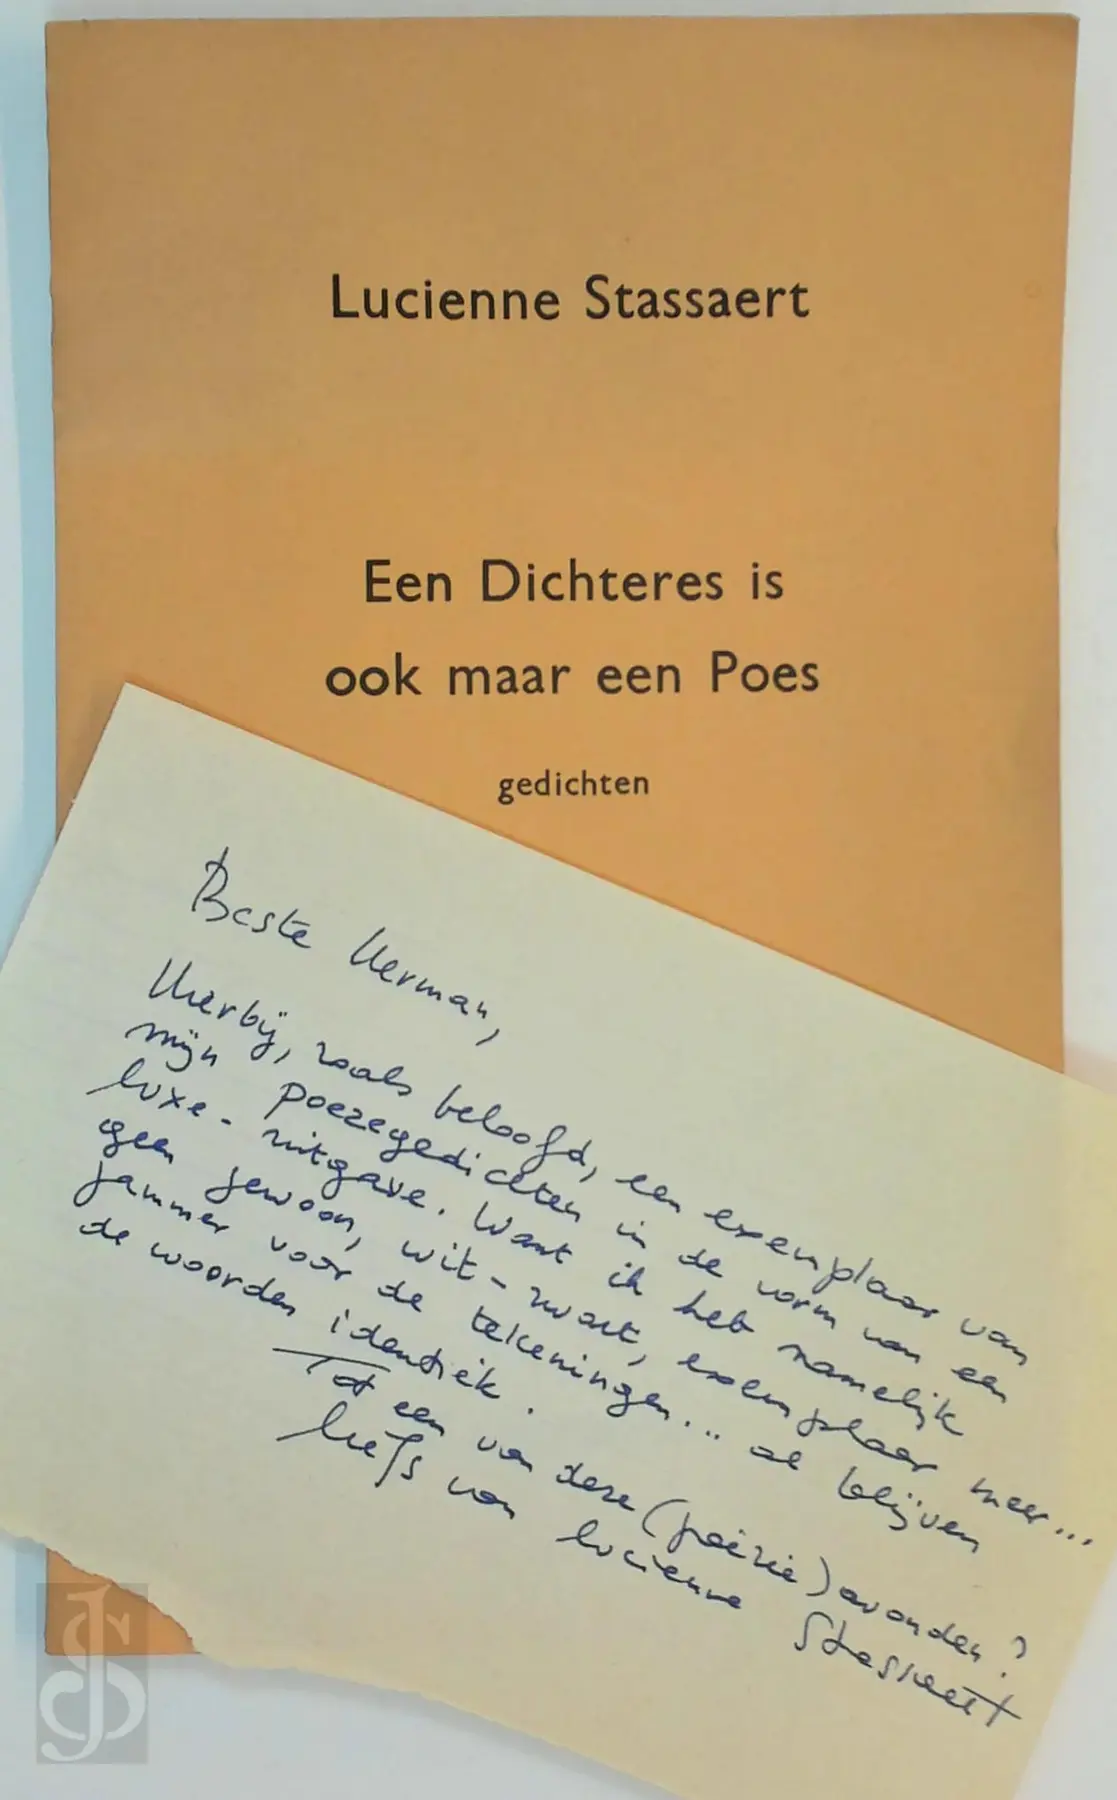 Lucienne Stassaert
Een Dichteres is
ook maar een Poes
gedichten
Beste Herman,
Hierbij, zoals beloofd, een exemplaar van
mijn poezegedichten in de vorm van een
luxe-uitgave. Want ik heb namelijk
geen gewoon, wit-zwart, exemplaar meer...
jammer voor de tekeningen... al blijven
de woorden identiek.
Tot een van deze (poëzie) avonden?
liefs van Lucienne Stassaert
JS